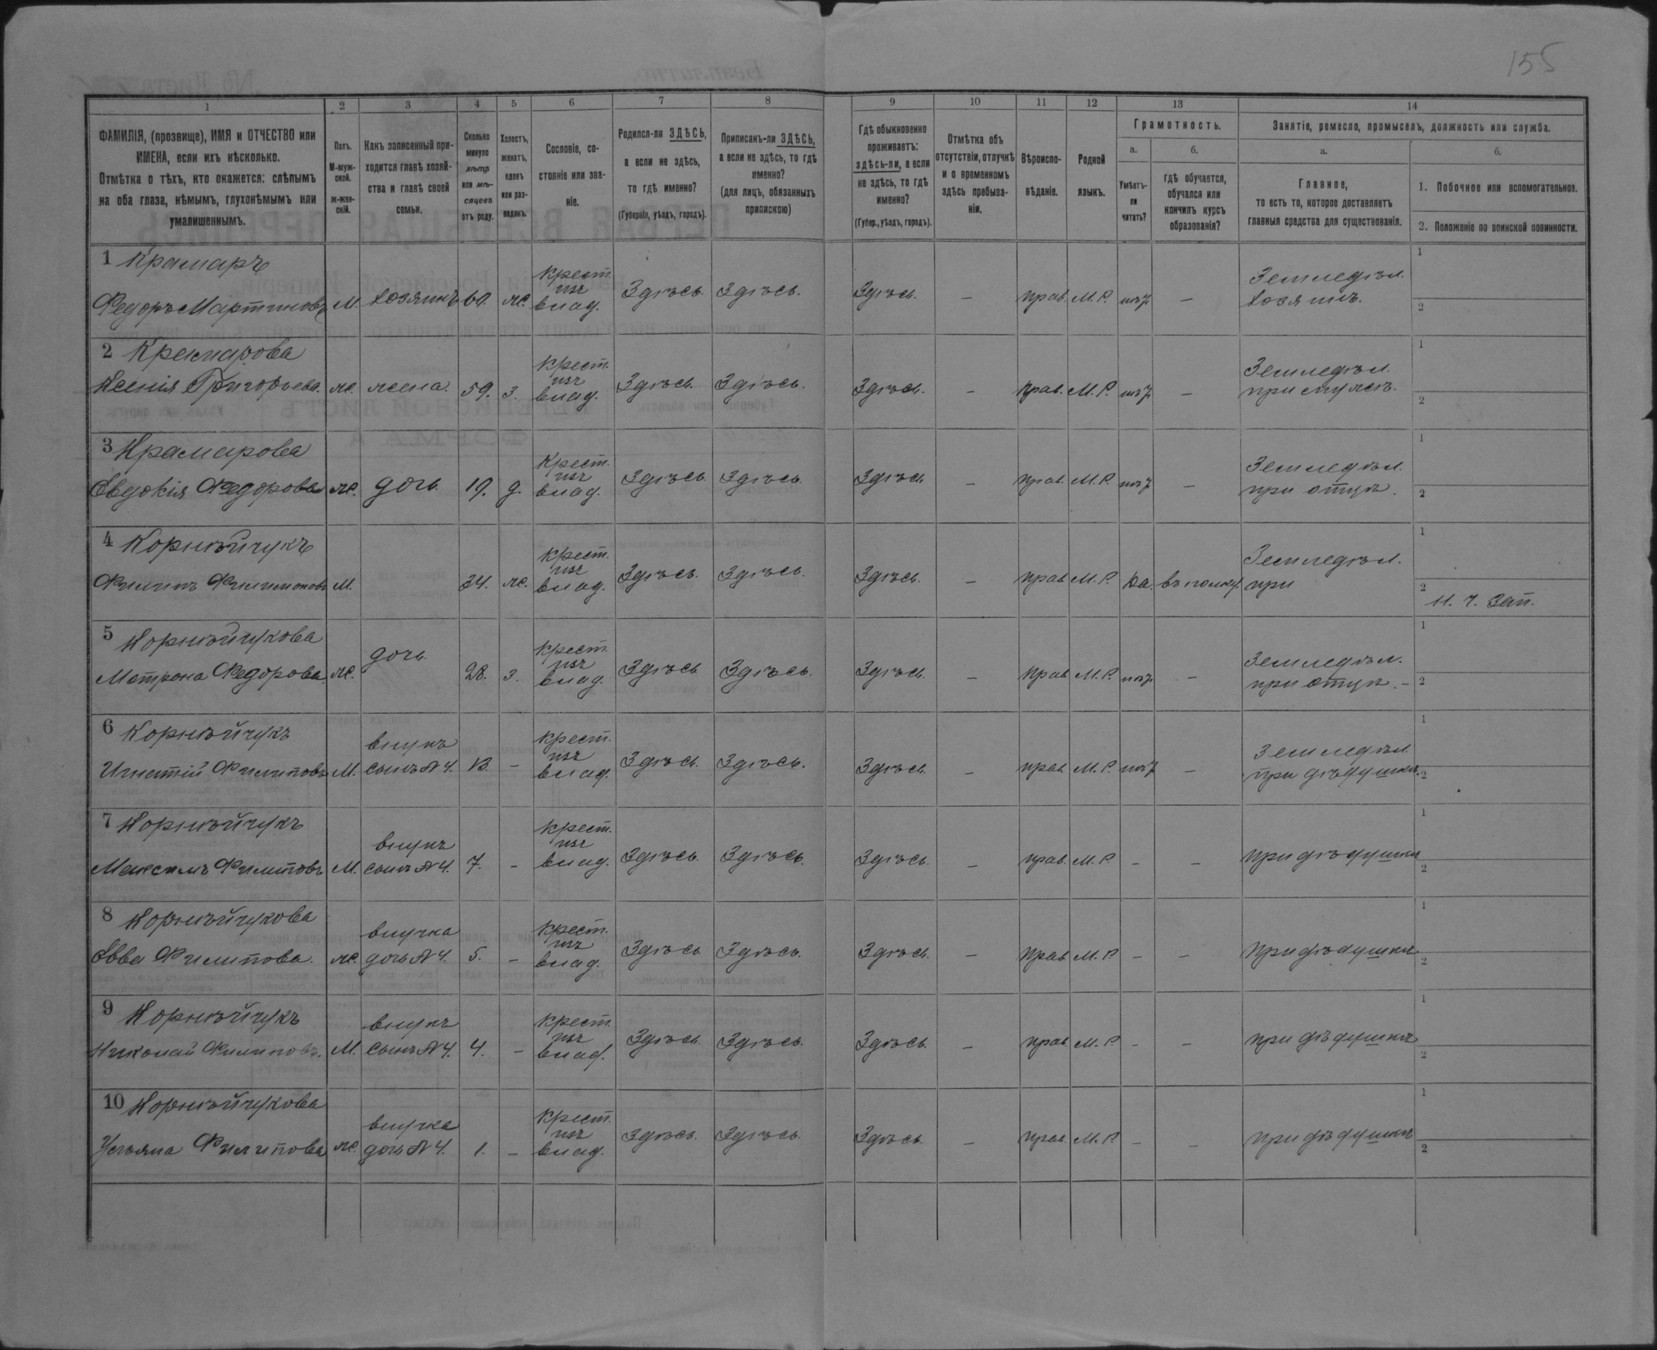 155
1 2 3 4 5 6 7 8 9 10 11 12 13 14
ФАМИЛІЯ, (прозвище), ИМЯ и ОТЧЕСТВО или ИМЕНА, если ихъ нѣсколько.
Отмѣтка о тѣхъ, кто окажется: слѣпымъ на оба глаза, нѣмымъ, глухонѣмымъ или умалишеннымъ.
Полъ.
М-мужской.
ж-женскій.
Какъ записанный приходится главѣ хозяйства и главѣ своей семьи.
Сколько минуло лѣтъ или мѣсяцевъ отъ роду.
Холостъ, женатъ, вдовъ или разведенъ.
Сословіе, состояніе или званіе.
Родился-ли ЗДѢСЬ, а если не здѣсь, то гдѣ именно?
(Губернія, уѣздъ, городъ).
Приписанъ-ли ЗДѢСЬ, а если не здѣсь, то гдѣ именно?
(для лицъ, обязанныхъ припискою)
Гдѣ обыкновенно проживаетъ: здѣсь-ли, а если не здѣсь, то гдѣ именно?
(Губер., уѣздъ, городъ).
Отмѣтка объ отсутствіи, отлучкѣ и о временномъ здѣсь пребываніи.
Вѣроисповѣданіе.
Родной языкъ.
Грамотность.
а.
Умѣетъ-ли читать?
б.
гдѣ обучается, обучался или кончилъ курсъ образованія?
Занятіе, ремесло, промыселъ, должность или служба.
а.
Главное,
то есть то, которое доставляетъ главныя средства для существованія.
б.
1. Побочное или вспомогательное.
2. Положеніе по воинской повинности.
1 Крамаръ
Федоръ Мартиновъ М. хозяинъ 60. ж. крест. изъ влад. Здѣсь Здѣсь. Здѣсь. – прав. М.Р. нѣт – Земледѣл. хозяинъ. 1 2
2 Крамарова
Ксенія Григорьева ж. жена 59. з. крест. изъ влад. Здѣсь. Здѣсь. Здѣсь. – прав. М.Р. нѣт – Земледѣл. при мужѣ. 1 2
3 Крамарова
Евдокія Федорова ж. дочь 19. д. Крест. изъ влад. Здѣсь Здѣсь Здѣсь – прав. М.Р. нѣт – Земледѣл. при отцѣ. 1 2
4 Корнѣйчукъ
Филипъ Филимоновъ М. 34. ж. крест. изъ влад. Здѣсь. Здѣсь. Здѣсь. – прав М.Р. да. въ полку. Земледѣл. при 1 2 Н. ч. Зап.
5 Корнѣйчукова
Матрона Федорова ж. дочь 28. з. крест. изъ влад. Здѣсь Здѣсь. Здѣсь. – прав М.Р. нѣт – Земледѣл. при отцѣ. – 1 2
6 Корнѣйчукъ
Игнатій Филиповъ М. внукъ сынъ №4. 13. – крест. изъ влад. Здѣсь. Здѣсь. Здѣсь. – прав. М.Р. нѣт – Земледѣл при дѣдушкѣ. 1 2
7 Корнѣйчукъ
Максимъ Филиповъ М. внукъ сынъ №4. 7. – крест. изъ влад. Здѣсь. Здѣсь. Здѣсь. – прав. М.Р. – – при дѣдушкѣ 1 2
8 Корнѣйчукова
Евва Филипова. ж. внучка дочь №4. 5. – крест. изъ влад. Здѣсь Здѣсь. Здѣсь. – прав М.Р. – – при дѣдушкѣ 1 2
9 Корнѣйчукъ
Николай Филиповъ. М. внукъ сынъ №4. 4. – крест. изъ влад. Здѣсь. Здѣсь. Здѣсь. – прав М.Р – – при дѣдушкѣ 1 2
10 Корнѣйчукова
Ульяна Филипова ж. внучка дочь №4. 1. – крест. изъ влад. Здѣсь. Здѣсь. Здѣсь. – прав М.Р. – – при дѣдушкѣ 1 2